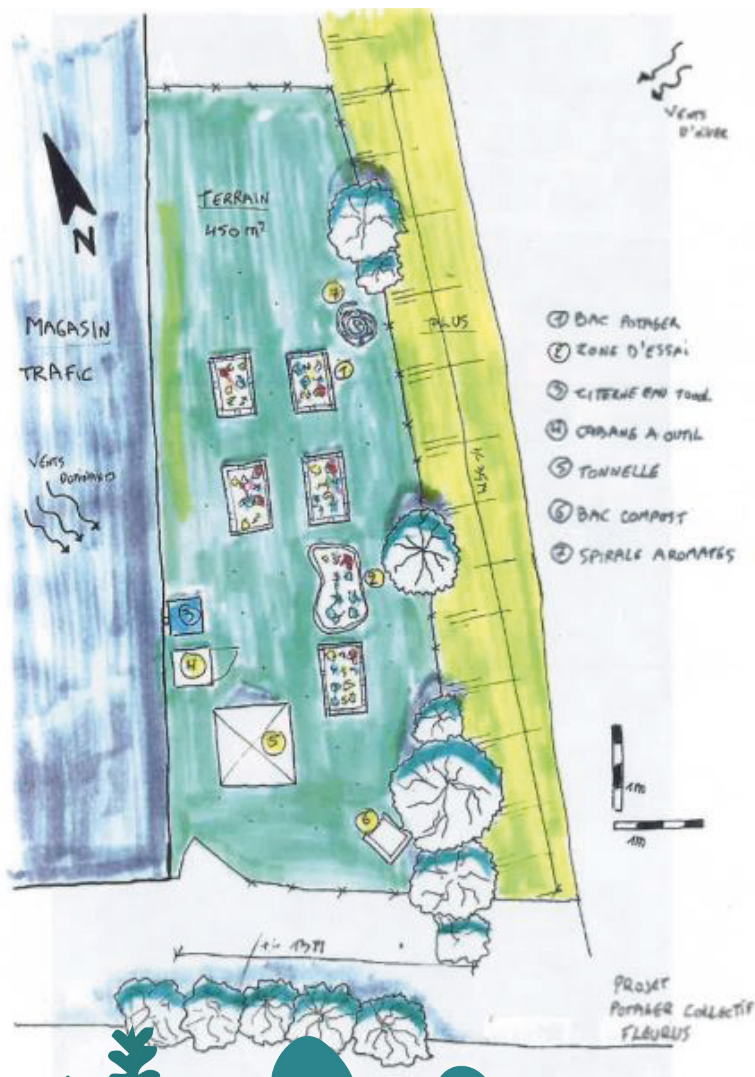 VENTS
D'HIVER
TERRAIN
450 m²
N
MAGASIN
TRAFIC
VENTS
DOMINANTS
7
1
2
3
4
5
6
① BAC POTAGER
② ZONE D'ESSAI
③ CITERNE EAU
④ CABANE A OUTIL
⑤ TONNELLE
⑥ BAC COMPOST
⑦ SPIRALE AROMATES
1m
1m
PROJET
POTAGER COLLECTIF
FLEURUS